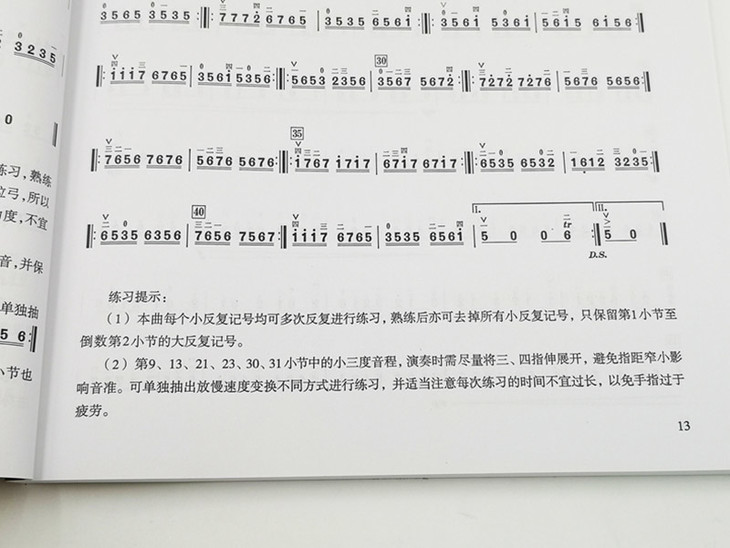 3565 3535 7772 6765 3535 6561 3561 5361 5615 6156
3235
30
1117 6765 3561 5356 5653 2356 3567 5672 7272 7276 5676 5656
0
35
7656 7676 5676 5676 1767 1717 6717 6717 6535 6532 1612 3235
练习，熟练
拉弓，所以
度，不宜
40
I. II.
6535 6356 7656 7567 1117 6765 3535 6561 5 0 0 6 5 0
tr
D.S.
音，并保
单独抽
5 6
小节也
练习提示：
（1）本曲每个小反复记号均可多次反复进行练习，熟练后亦可去掉所有小反复记号，只保留第1小节至
倒数第2小节的大反复记号。
（2）第9、13、21、23、30、31小节中的小三度音程，演奏时需尽量将三、四指伸展开，避免指距窄小影
响音准。可单独抽出放慢速度变换不同方式进行练习，并适当注意每次练习的时间不宜过长，以免手指过于
疲劳。
13